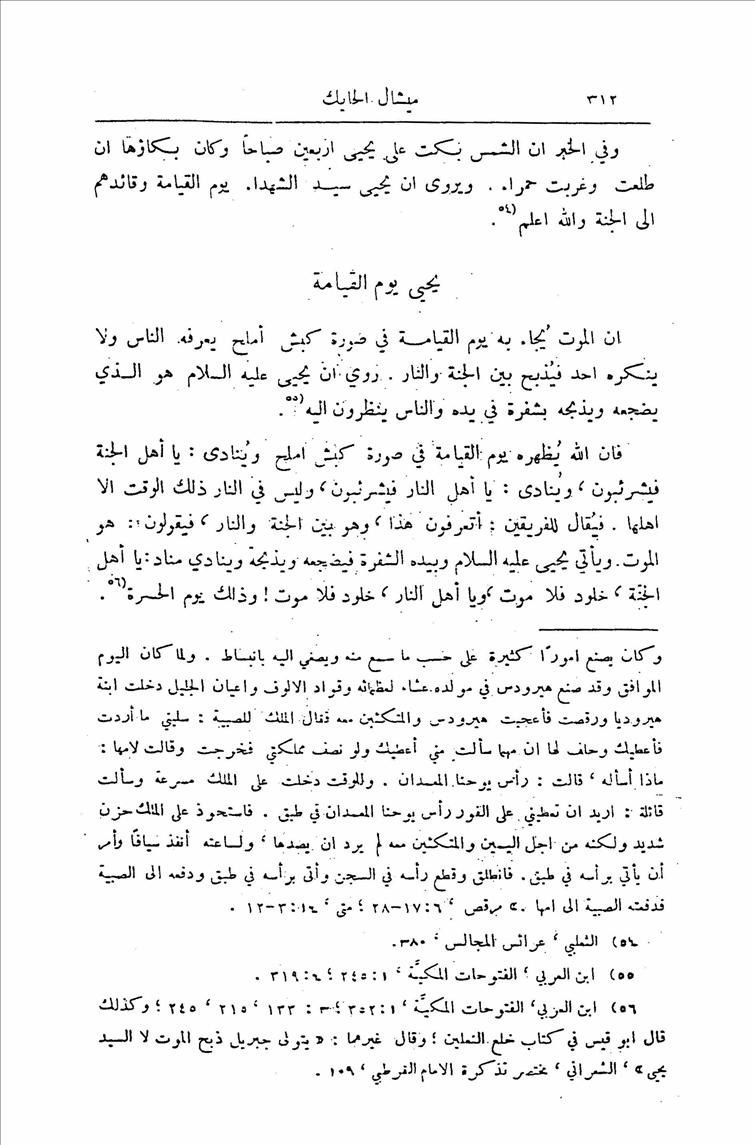 ٣١٢ ميشال الحايك
وفي الخبر ان الشمس بكت على يحيى اربعين صباحاً وكان بكاؤها ان
طلعت وغربت حمراء . ويروى ان يحيى سيد الشهداء يوم القيامة وقائدهم
الى الجنة والله اعلم(٥٤.
يحيى يوم القيامة
ان الموت يُجاء به يوم القيامة في صورة كبش أملح يعرفه الناس ولا
ينكره احد فيُذبح بين الجنة والنار . روي ان يحيى عليه السلام هو الذي
يضجعه ويذبحه بشفرة في يده والناس ينظرون اليه(٥٥.
فان الله يُظهره يوم القيامة في صورة كبش املح ويُنادى : يا أهل الجنة
فيشرئبون ، ويُنادى : يا أهل النار فيشرئبون ، وليس في النار ذلك الوقت الا
اهلها . فيُقال للفريقين : أتعرفون هذا ، وهو بين الجنة والنار ، فيقولون : هو
الموت . ويأتي يحيى عليه السلام وبيده الشفرة فيضجعه ويذبحه وينادي مناد : يا أهل
الجنّة ، خلود فلا موت ، ويا أهل النار ، خلود فلا موت ! وذلك يوم الحسرة(٥٦ .
وكان يصنع اموراً كثيرة على حسب ما سمع منه ويصغي اليه بانبساط . ولما كان اليوم
الموافق وقد صنع هيرودس في مولده عشاء لعظمائه وقواد الالوف واعيان الجليل دخلت ابنة
هيروديا ورقصت فأعجبت هيرودس والمتكئين معه فقال الملك للصبية : سليني ما أردت
فأعطيك وحلف لها ان مهما سألت مني أعطيك ولو نصف مملكتي فخرجت وقالت لامها :
ماذا أسأله ، قالت : رأس يوحنا المعمدان . وللوقت دخلت على الملك مسرعة وسألت
قائلة : اريد ان تعطيني على الفور رأس يوحنا المعمدان في طبق . فاستحوذ على الملك حزن
شديد ولكنه من اجل اليمين والمتكئين معه لم يرد ان يصدها ، ولساعته أنفذ سيافاً وأمر
أن يأتي برأسه في طبق . فانطلق وقطع رأسه في السجن وأتى برأسه في طبق ودفعه الى الصبية
فدفعته الصبية الى امها .» مرقص ، ٦:١٧-٢٨ ؛ متى ، ١٤:٣-١٢ .
٥٤) الثعلبي ، عرائس المجالس ، ٣٨٠.
٥٥) ابن العربي ، الفتوحات المكيَّة ، ١:٢٤٥ ؛ ٤:٣١٩ .
٥٦) ابن العربي ، الفتوحات المكيَّة ، ١:٣٥٢ ؛ ٣ : ١٣٣ ، ٢١٥ ، ٢٤٥ ؛ وكذلك
قال ابو قيس في كتاب خلع النعلين ؛ وقال غيرهما : « يتولى جبريل ذبح الموت لا السيد
يحيى » ، الشعراني ، مختصر تذكرة الامام القرطبي ، ١٠٩ .